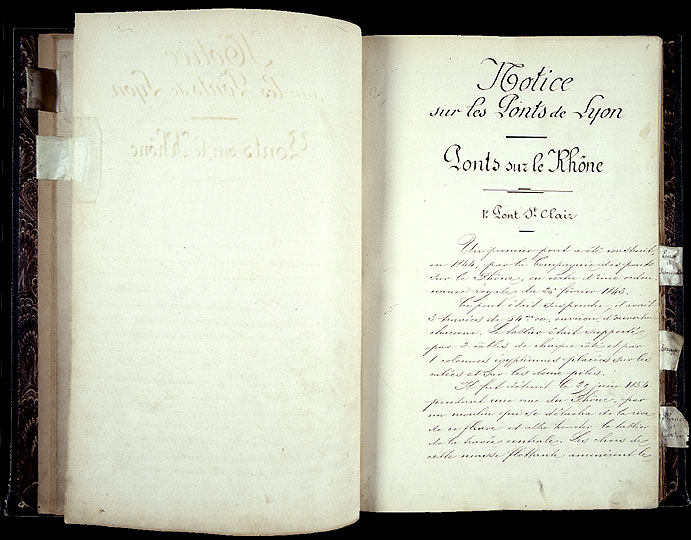 Notice
sur les Ponts de Lyon
Ponts sur le Rhône
1º Pont St Clair
Un premier pont a été construit,
en 1844, par la Compagnie des ponts
sur le Rhône, en vertu d'une ordon-
nance royale du 26 février 1843.
Ce pont était suspendu, il avait
3 travées de 54m00, environ, d'ouverture
chacune. Le tablier était supporté
par 2 câbles de chaque côté et par
colonnes égyptiennes placées sur les
culées et sur les deux piles.
Il fut détruit le 29 juin 1854
pendant une crue du Rhône, par
un moulin qui se détacha de la rive
et alla heurter le tablier
de la travée centrale. Les chocs de
cette masse flottante amenèrent le